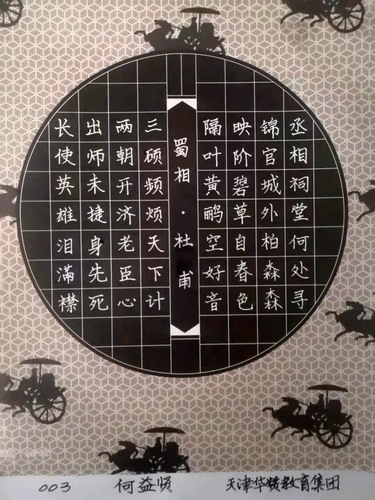 丞相祠堂何处寻
锦官城外柏森森
映阶碧草自春色
隔叶黃鹂空好音
蜀相·杜甫
三硕频烦天下计
两朝开济老臣心
出师未捷身先死
长使英雄泪滿襟
003 何益贤 天津华教育集团